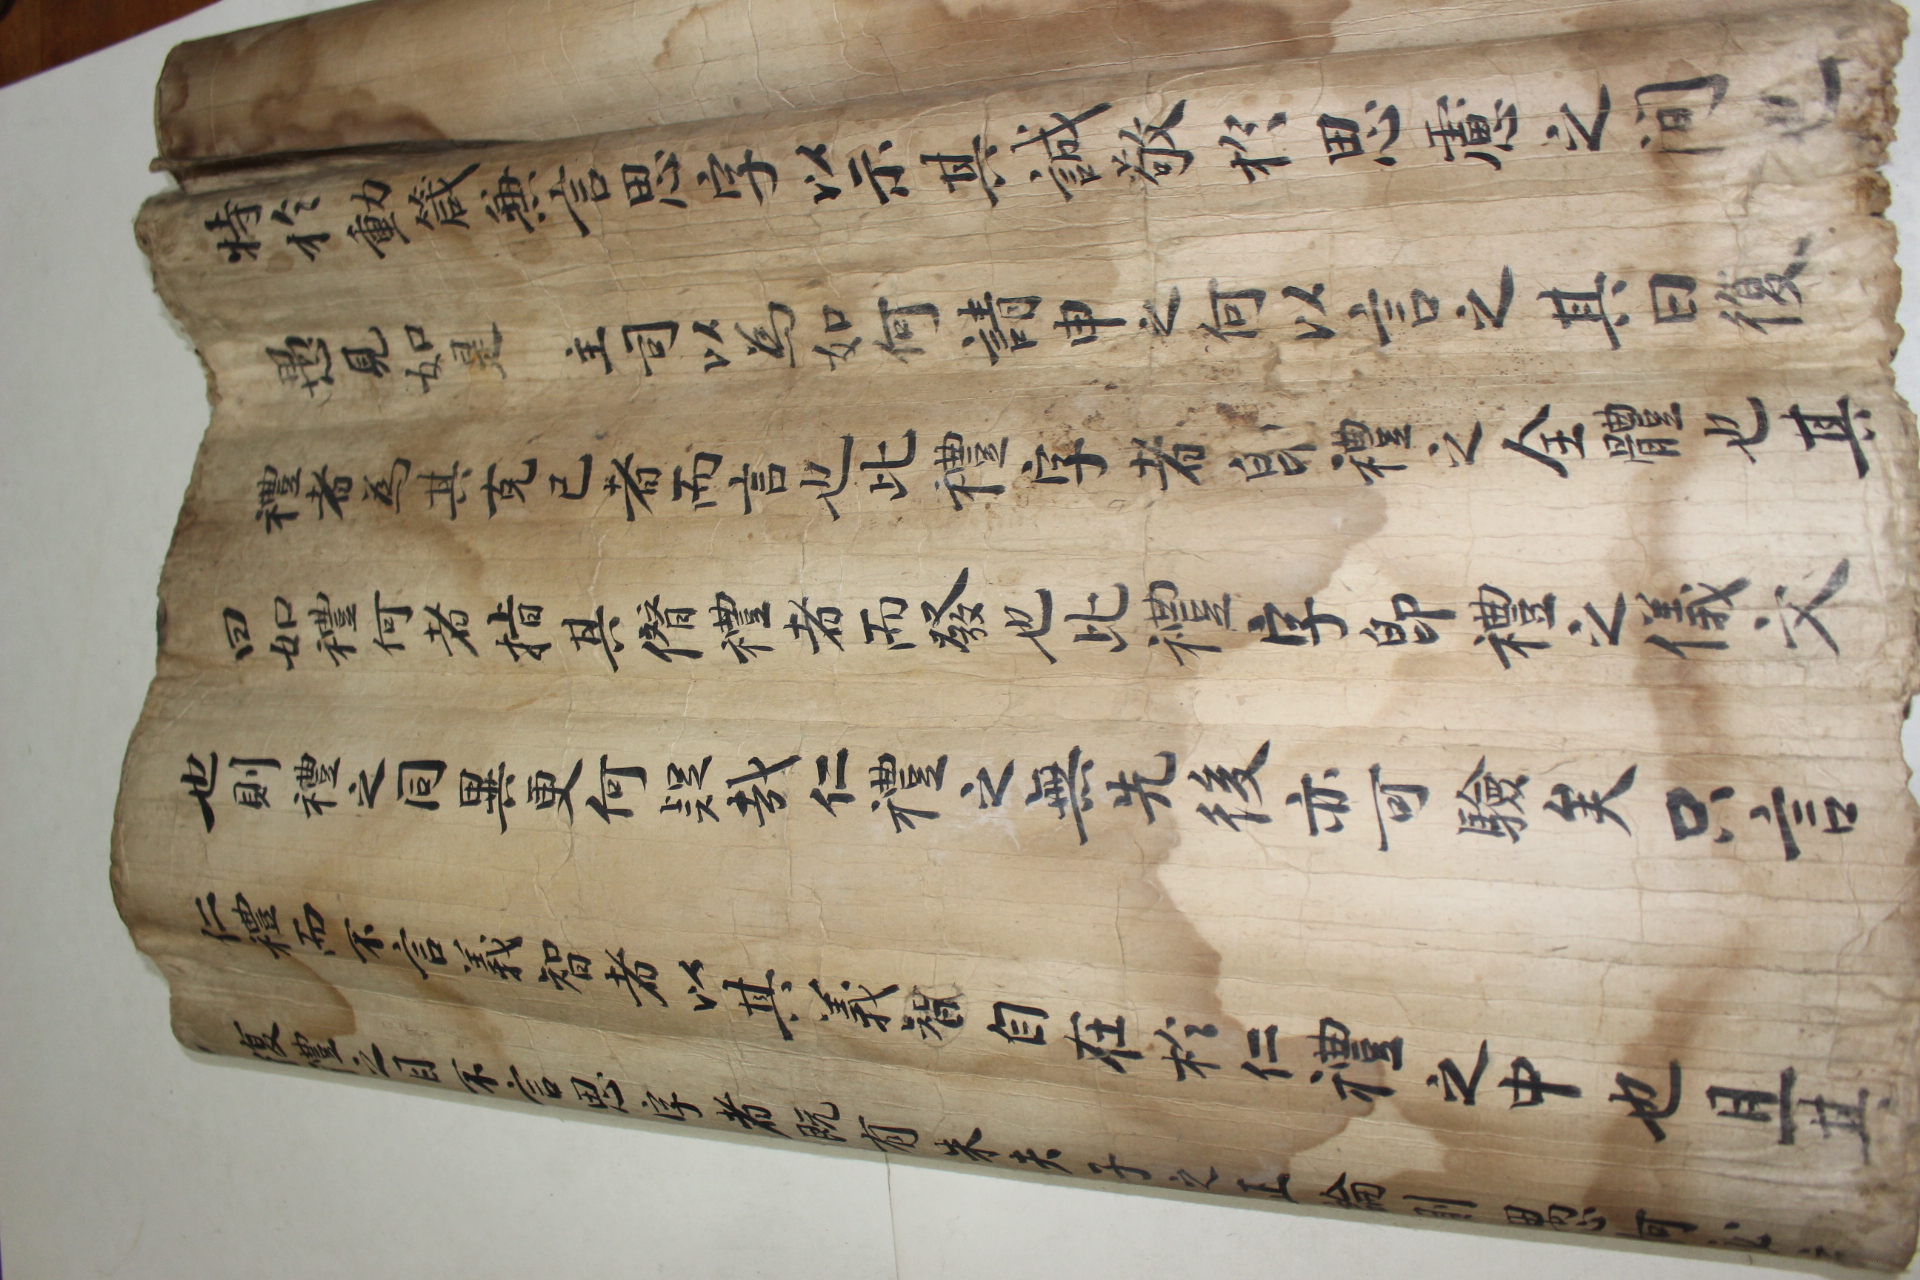 特於動箴無言思字以示其誠敬於思慮之間也
愚見如是 主司以為如何請申之何以言之其曰復
禮者為其克已者而言也此禮字者卽禮之全體也其
曰如禮何者指其僭禮者而發也此禮字卽禮之儀文
也則禮之同異更何疑哉仁禮之無先後亦可驗矣只言
仁禮而不言義智者以其義智自在於仁禮之中也且其
復禮之目不言思字者旣有朱夫子之正論則愚何